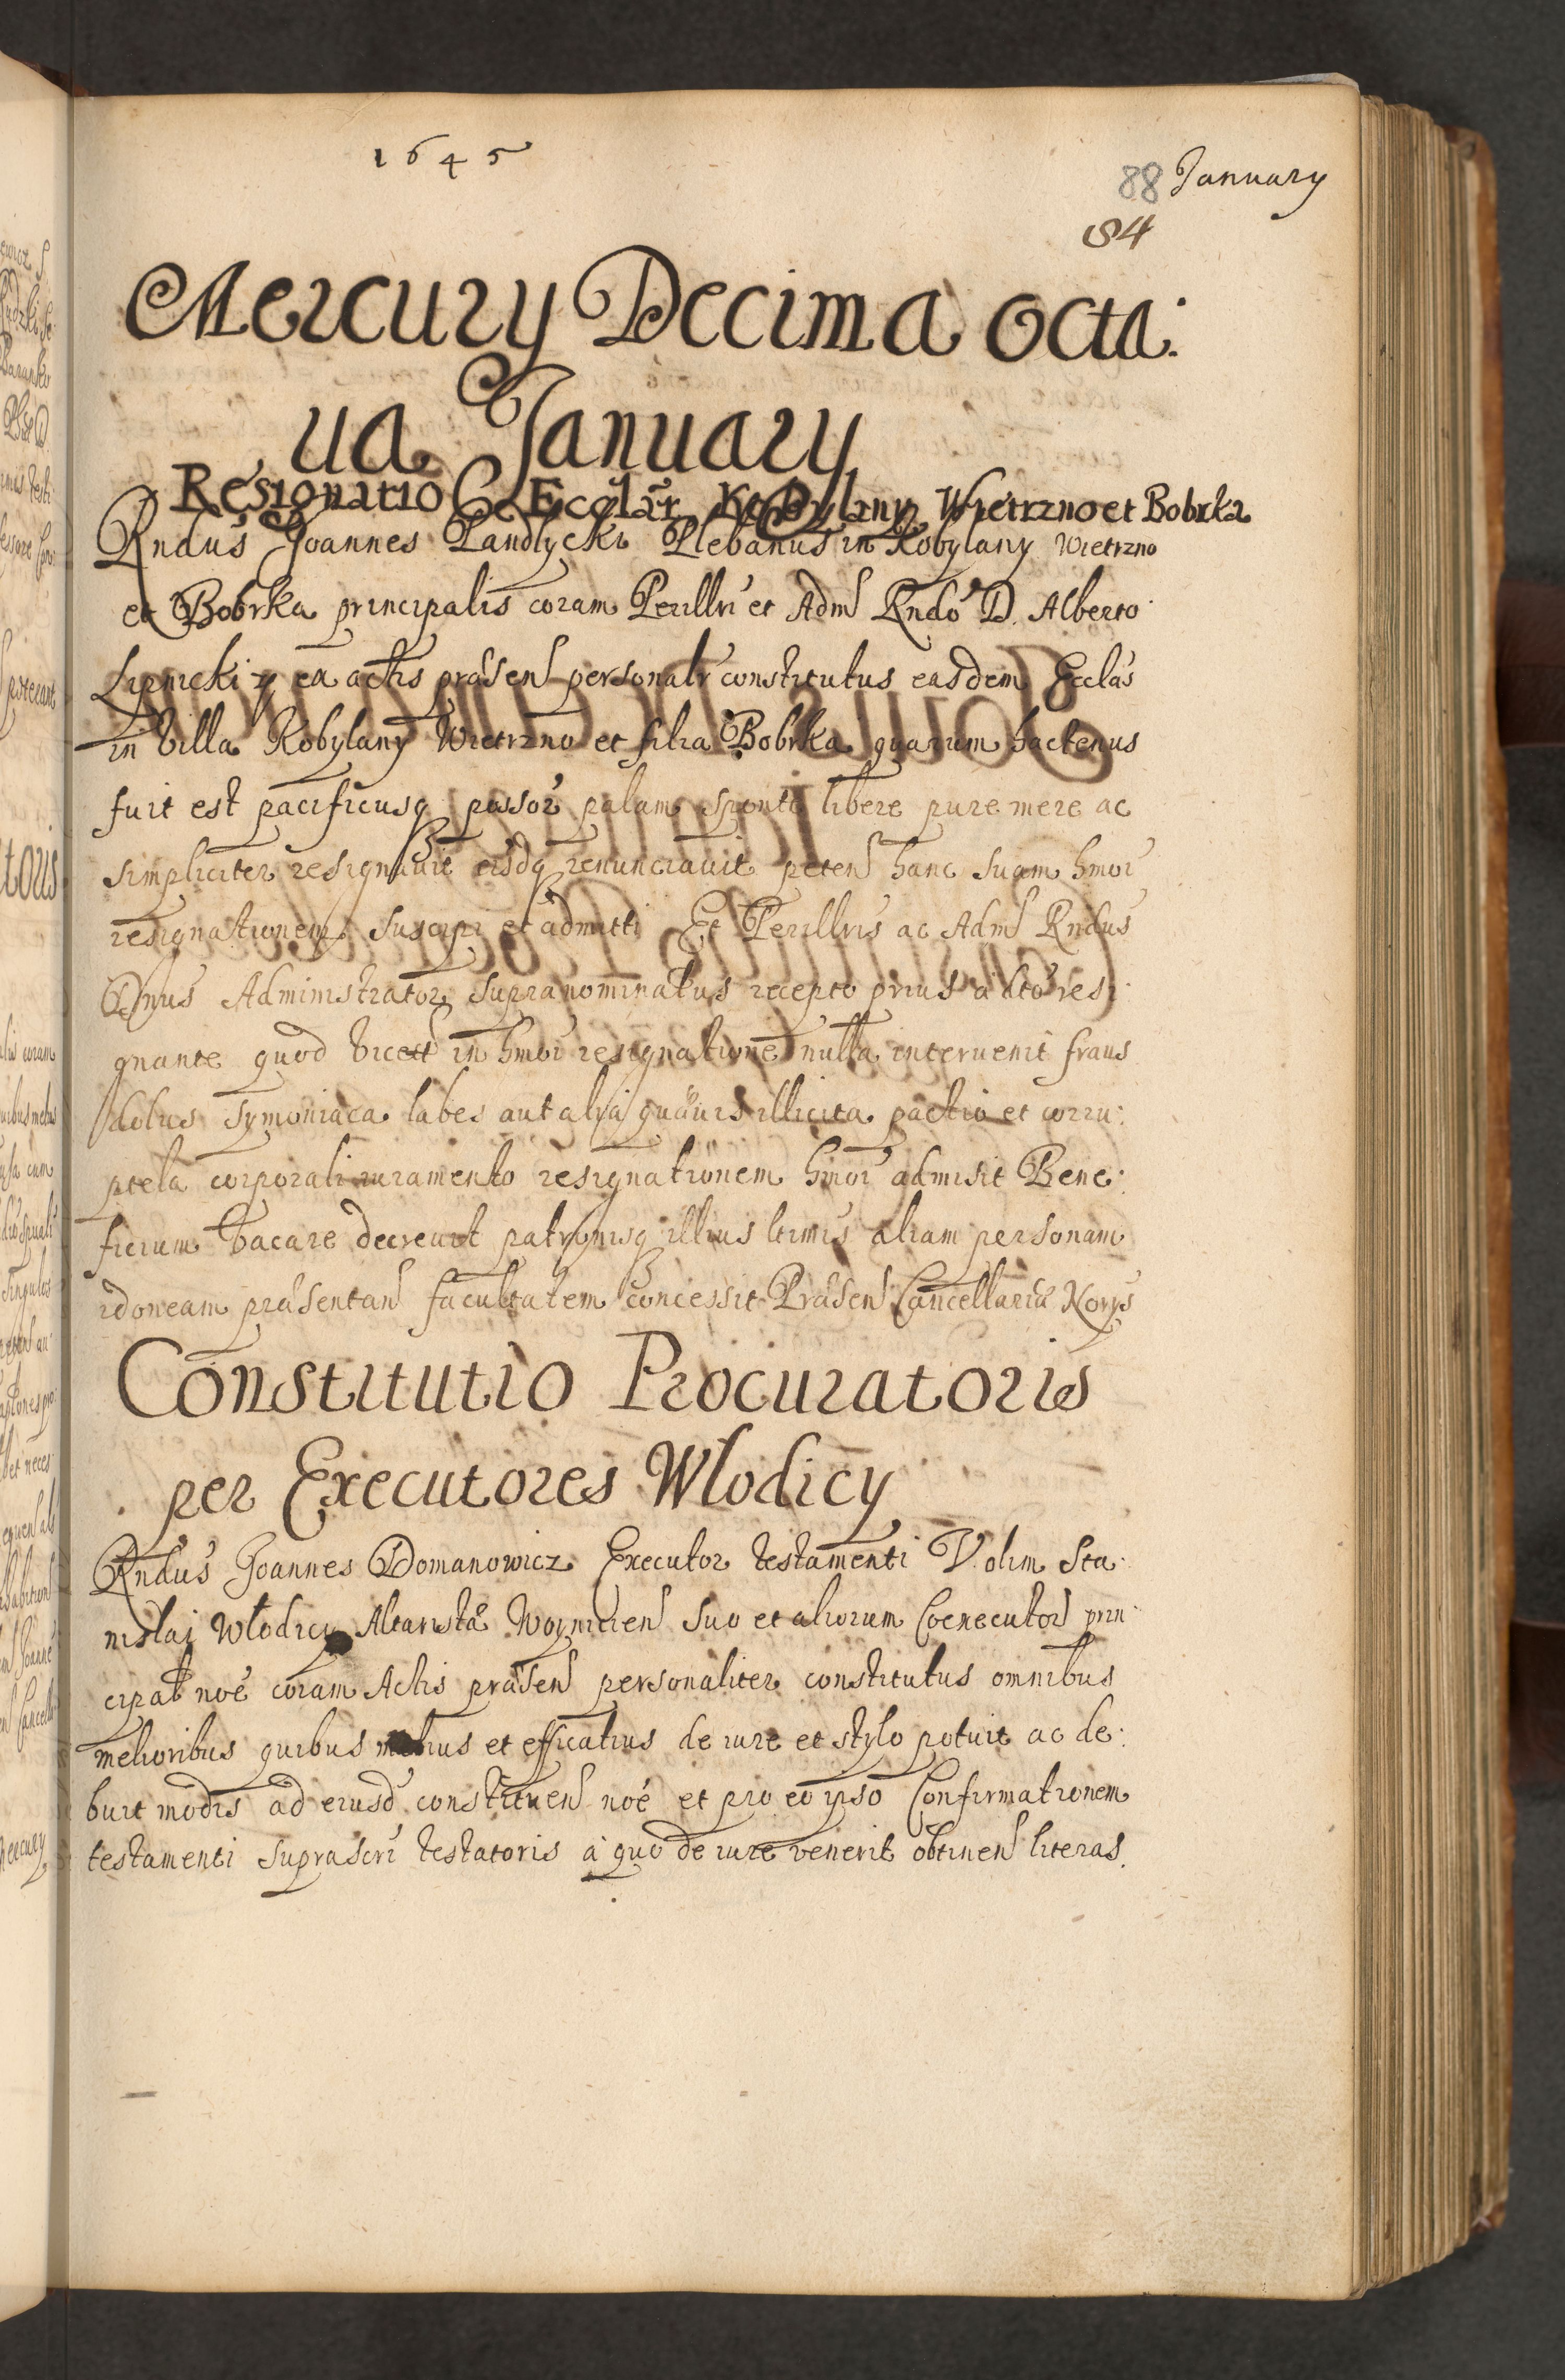 1645
88 January
84
Mercury Decima octa:
ua January
Resignatio Ecclar Kobylany Wietrzno et Bobrka
Rndus Joannes Pandlycki Plebanus in Kobylany Wietrzno
et Bobrka principalis coram Perillri et Adm Rndo D. Alberto
Lipnicki ex ea actis præsen personalr constitutus easdem Ecclas
in villa Kobylany Wietrzno et filia Bobrka quarum hactenus
fuit est pacificusq possor palam sponte libere pure mere ac
simpliciter resignauit eisdq renunciauit peten hanc suam hmoi
resignationem suscipi et admitti Et Perillris ac Adm Rndus
Dnus Administrator supranominatus recepto prius a dto resi:
gnante quod in hmoi resignatione nulla interuenit fraus
dolus symoniaca labes aut alia quauis illicita pactio et corru:
ptela corporali iuramento resignationem hmoi admisit Bene:
ficium vacare decreuit patronisq illius ltimis aliam personam
idoneam præsentan facultatem concessit Præsen Cancellariæ Norys
Constitutio Procuratoris
per Executores Wlodicy
Rndus Joannes Domanowicz Executor testamenti V. olim Sta:
nislai Wlodicy Altaristæ Woynicien suo et aliorum Coexecutor prin:
cipal noe coram Actis præsen personaliter constitutus omnibus
melioribus quibus melius et efficatius de iure et stylo potuit ac de:
buit modis ad eiusd constituen noe et pro eo ipso Confirmationem
testamenti suprascri testatoris a quo de iure venerit obtinen literas